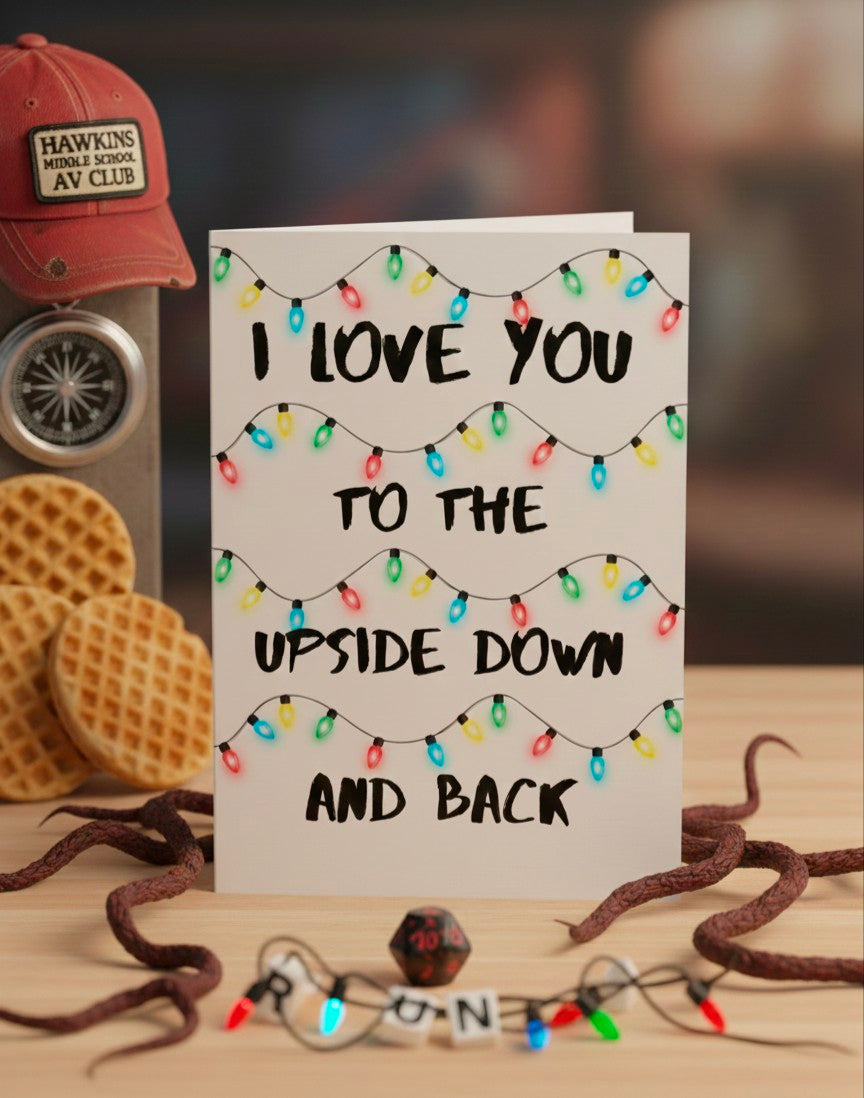 HAWKINS
MIDDLE SCHOOL
AV CLUB
I LOVE YOU
TO THE
UPSIDE DOWN
AND BACK
20
R U N